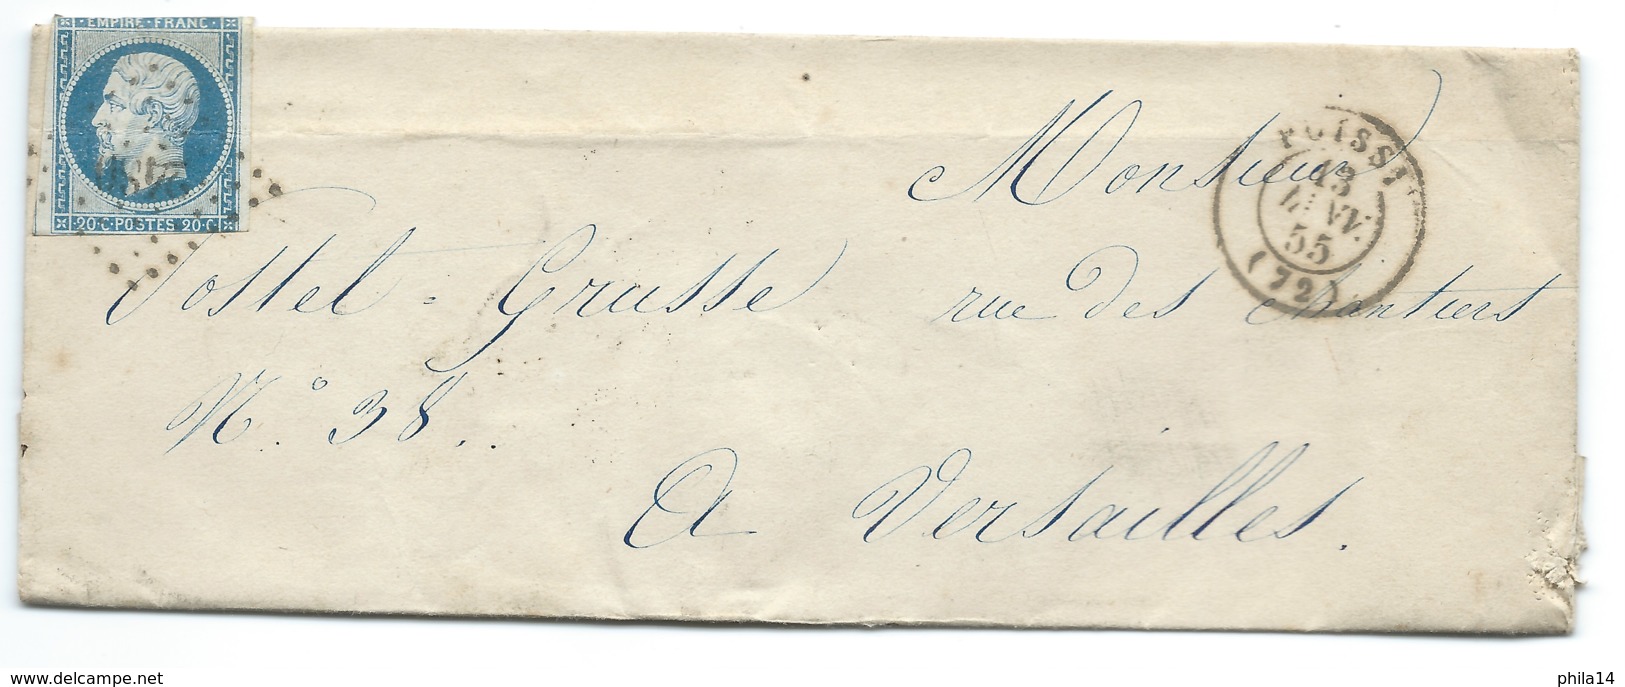 EMPIRE · FRANC ·
· 20 · C · POSTES 20 · C ·
POISSY
13
JANV.
55
(72)
Monsieur
Postel = Grusse rue des Chantiers
N.° 38..
A Versailles.
www.delcampe.net
phila14